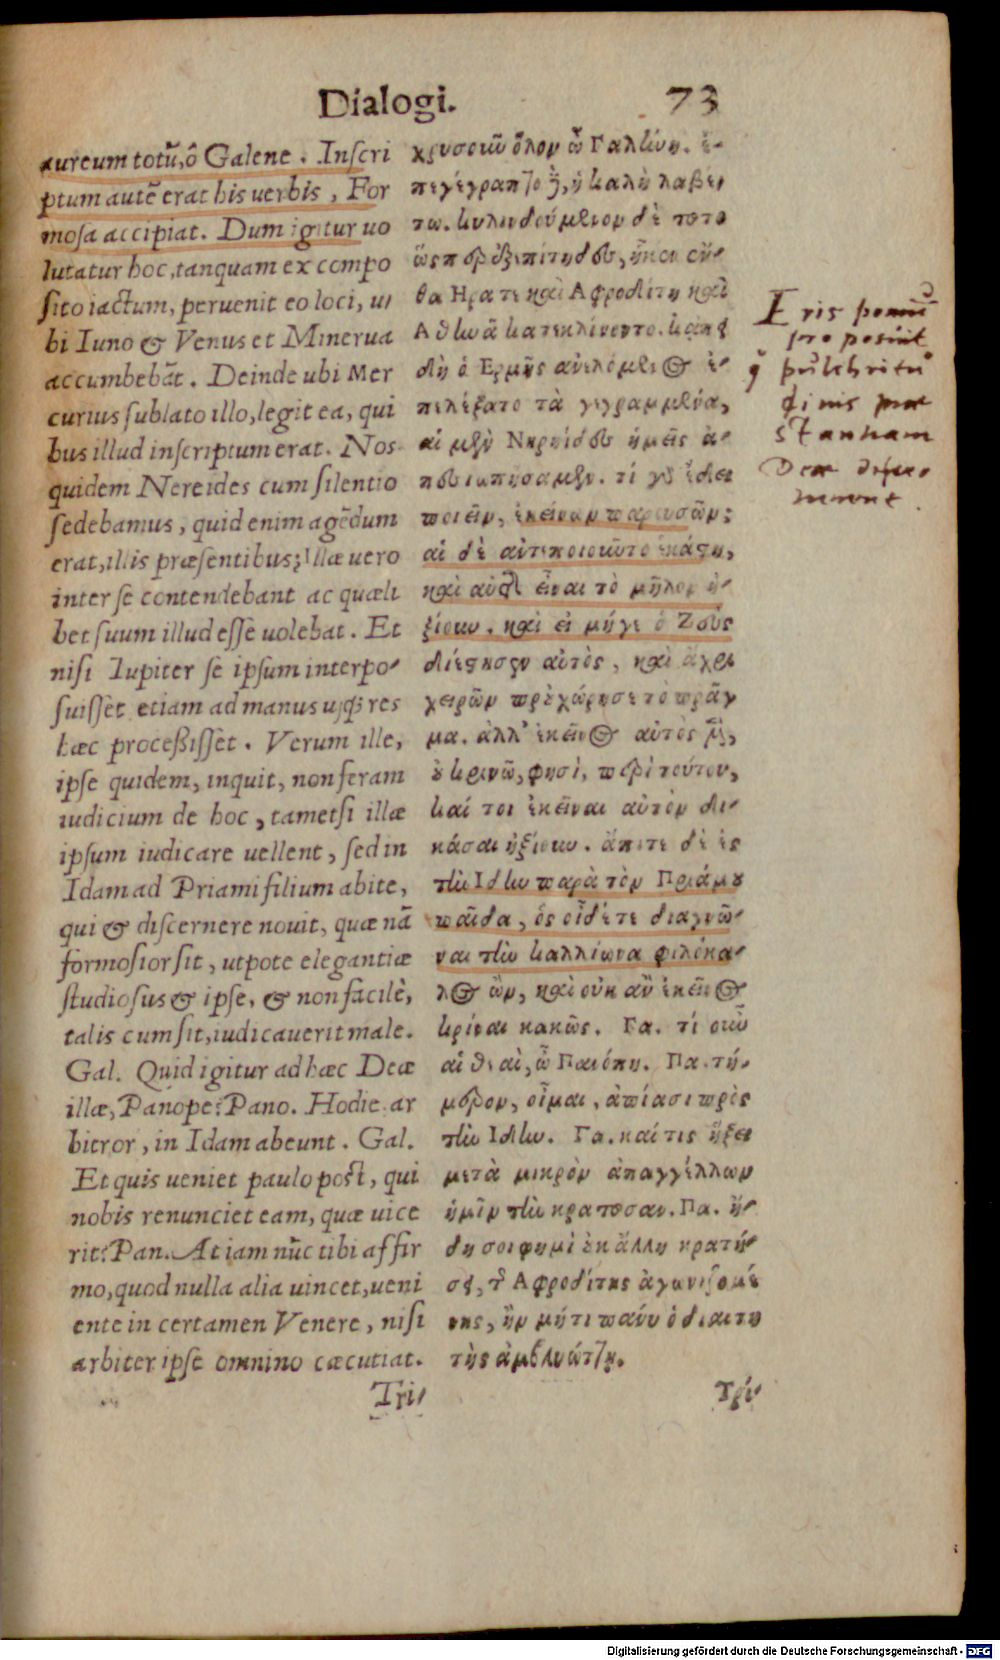 Dialogi. 73
aureum totū, ô Galene. Inscri
ptum autē erat his uerbis, For
mosa accipiat. Dum igitur uo
lutatur hoc, tanquam ex compo
sito iactum, peruenit eo loci, u-
bi Iuno & Venus et Minerua
accumbebāt. Deinde ubi Mer
curius sublato illo, legit ea, qui
bus illud inscriptum erat. Nos
quidem Nereides cum silentio
sedebamus, quid enim agēdum
erat, illis præsentibus? Illæ uero
inter se contendebant ac quæli
bet suum illud esse uolebat. Et
nisi Iupiter se ipsum interpo-
suisset, etiam ad manus usq; res
hæc processisset. Verum ille,
ipse quidem, inquit, non feram
iudicium de hoc, tametsi illæ
ipsum iudicare uellent, sed in
Idam ad Priami filium abite,
qui & discernere nouit, quæ nā
formosior sit, utpote elegantiæ
studiosus & ipse, & non facilè,
talis cum sit, iudicauerit male.
Gal. Quid igitur ad hæc Deæ
illæ, Panope? Pano. Hodie ar
bitror, in Idam abeunt. Gal.
Et quis ueniet paulo post, qui
nobis renunciet eam, quæ uice
rit? Pan. At iam nūc tibi affir
mo, quod nulla alia uincet, ueni
ente in certamen Venere, nisi
arbiter ipse omnino cæcutiat.
Tri-
χρυσοῦν ὅλον ὦ Γαλήνη. ἐ-
πεγέγραπτο δὲ, ἡ καλὴ λαβέ-
τω. κυλινδούμενον δὲ τοῦτο
ὥσπερ ἐξεπίτηδες, ἧκεν ἔν-
θα Ἥρα τε καὶ Ἀφροδίτη καὶ
Ἀθηνᾶ κατεκλίνοντο. κἀπει
δὴ ὁ Ἑρμῆς ἀνελόμενος ἐ-
πελέξατο τὰ γεγραμμένα,
αἱ μὲν Νηρηίδες ἡμεῖς ἀ-
πεσιωπήσαμεν. τί γὰρ ἔδει
ποιεῖν, ἐκείνων παρουσῶν;
αἱ δὲ ἀντεποιοῦντο ἑκάστη,
καὶ αὑτῆς εἶναι τὸ μῆλον ἠ-
ξίουν. καὶ εἰ μήγε ὁ Ζεὺς
διέστησεν αὐτὸς, καὶ ἄχρι
χειρῶν προὐχώρησε τὸ πρᾶγ
μα. ἀλλ' ἐκεῖνος αὐτὸς μὲν,
οὐ κρινῶ, φησὶ, περὶ τούτου,
καί τοι ἐκεῖναι αὐτὸν δι-
κάσαι ἠξίουν. ἄπιτε δὲ ἐς
τὴν Ἴδην παρὰ τὸν Πριάμου
παῖδα, ὃς οἶδέ τε διαγνῶ-
ναι τὴν καλλίωνα φιλόκα-
λος ὢν, καὶ οὐκ ἂν ἐκεῖνος
κρίναι κακῶς. Γα. τί οὖν
αἱ θεαὶ, ὦ Πανόπη. Πα. τή-
μερον, οἶμαι, ἀπίασι πρὸς
τὴν Ἴδην. Γα. καί τις ἥξει
μετὰ μικρὸν ἀπαγγέλλων
ἡμῖν τὴν κρατοῦσαν. Πα. ἤ-
δη σοι φημὶ ἐκ ἄλλη κρατή-
σει, τῆς Ἀφροδίτης ἀγωνιζομέ
νης, ἢν μήτι πάνυ ὁ διαιτη
τὴς ἀμβλυώττῃ.
Τρί-
Eris pomū
proposuit
ꝙ pulchritu
dinis præ
stantiam
Deæ